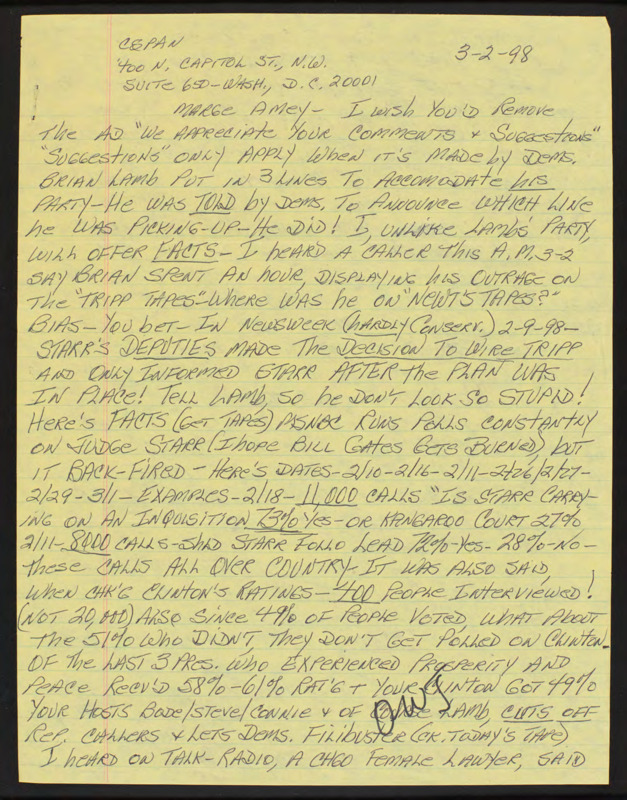 CSPAN
400 N. CAPITOL ST., N.W. 3-2-98
SUITE 650-WASH., D.C. 20001
MARGE AMEY- I WISH YOU'D REMOVE
THE AD "WE APPRECIATE YOUR COMMENTS & SUGGESTIONS"
"SUGGESTIONS" ONLY APPLY WHEN IT'S MADE by DEMS.
BRIAN LAMB PUT IN 3 LINES TO ACCOMODATE his
PARTY-HE WAS TOLD by DEMS. TO ANNOUNCE WHICH LINE
he WAS PICKING-UP-HE DID! I, UNLIKE LAMB'S PARTY,
WILL OFFER FACTS- I hEARD A CALLER THIS A.M. 3-2
SAY BRIAN SPENT AN hOUR, DISPLAYING his OUTRAGE ON
THE "TRIPP TAPES"-WHERE WAS he ON "NEWTS TAPES?"
BIAS-YOU BET- IN NEWSWEEK (hARDLY CONSERV.) 2-9-98-
STARR'S DEPUTIES MADE THE DECISION TO WIRE TRIPP
AND ONLY INFORMED STARR AFTER the PLAN WAS
IN PLACE! TELL LAMB, SO he DON'T LOOK SO STUPID!
HERE'S FACTS (GET TAPES) MSNBC RUNS POLLS CONSTANTLY
ON JUDGE STARR (I hOPE BILL GATES GETS BURNED) bUT
IT BACK-FIRED - HERE'S DATES-2/10-2/16-2/11-2/26/2/27-
2/29-3/1- EXAMPLES-2/18- 11,000 CALLS "IS STARR CARRY-
ING ON AN INQUISITION 73% YES-OR KANGAROO COURT 27%
2/11-8000 CALLS-SHLD STARR FOLLO LEAD 72%-YES- 28%-NO-
these CALLS ALL OVER COUNTRY- IT WAS ALSO SAID,
WHEN CHK'G CLINTON'S RATINGS- 400 PEOPLE INTERVIEWED!
(NOT 20,000) ALSO SINCE 49% OF PEOPLE VOTED, WHAT ABOUT
THE 51% WHO DIDN'T, THEY DON'T GET POLLED ON CLINTON.
OF THE LAST 3 PRES. WHO EXPERIENCED PROSPERITY AND
PEACE RECV'D 58%-61% RAT'G & YOUR CLINTON GOT 49%
YOUR HOSTS BODE/STEVE/CONNIE & OF LAMB, CUTS OFF
REP. CALLERS & LETS DEMS. FILIBUSTER (CK. TODAY'S TAPE)
I hEARD ON TALK-RADIO, A CHGO FEMALE LAWYER, SAID